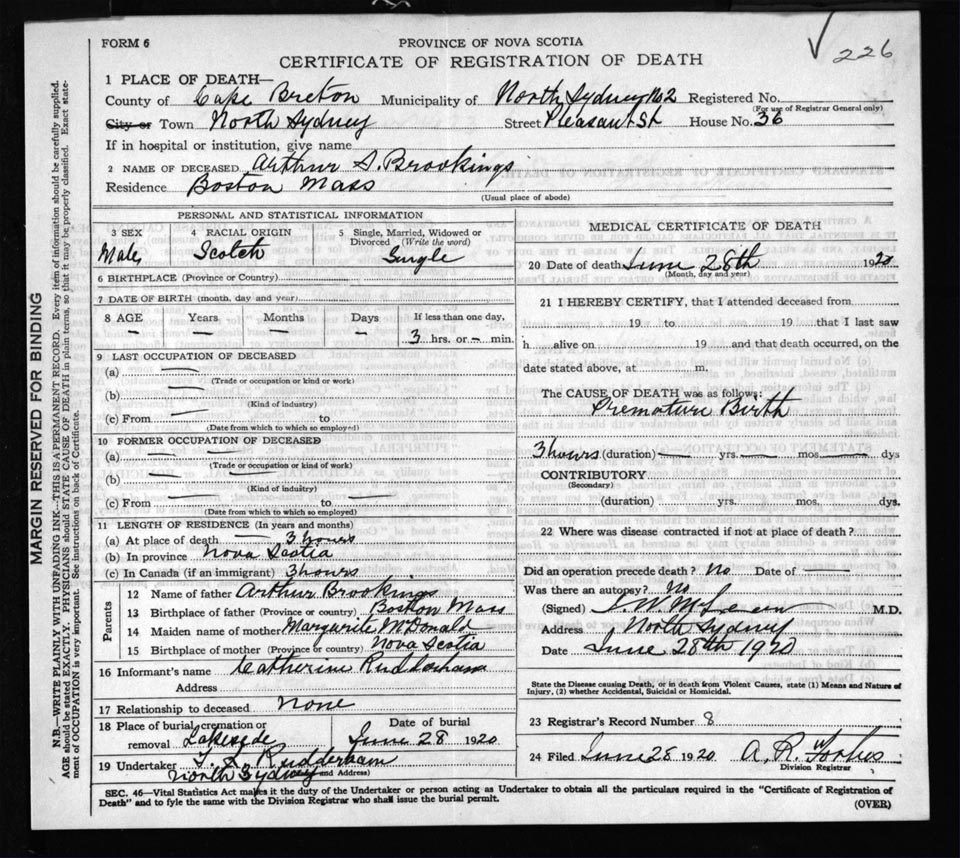 FORM 6
PROVINCE OF NOVA SCOTIA
CERTIFICATE OF REGISTRATION OF DEATH
√ 226
1 PLACE OF DEATH—
County of Cape Breton Municipality of North Sydney No 2 Registered No.
(For use of Registrar General only)
City or Town North Sydney Street Pleasant St House No. 36
If in hospital or institution, give name
2 NAME OF DECEASED Arthur S. Brookings
Residence Boston Mass
(Usual place of abode)
PERSONAL AND STATISTICAL INFORMATION
3 SEX 4 RACIAL ORIGIN 5 Single, Married, Widowed or Divorced (Write the word)
Male Scotch Single
6 BIRTHPLACE (Province or Country)
7 DATE OF BIRTH (month, day and year)
8 AGE Years Months Days If less than one day,
— — — — 3 hrs. or — min.
9 LAST OCCUPATION OF DECEASED
(a) —
(Trade or occupation or kind or work)
(b) —
(Kind of industry)
(c) From — to
(Date from which to which so employed)
10 FORMER OCCUPATION OF DECEASED
(a) — —
(Trade or occupation or kind of work)
(b) — —
(Kind of industry)
(c) From — to —
(Date from which to which so employed)
11 LENGTH OF RESIDENCE (In years and months)
(a) At place of death — 3 hours
(b) In province Nova Scotia
(c) In Canada (if an immigrant) 3 hours
Parents
12 Name of father Arthur Brookings
13 Birthplace of father (Province or country) Boston Mass
14 Maiden name of mother Margarite McDonald
15 Birthplace of mother (Province or country) Nova Scotia
16 Informant's name Catherine Rudderham
Address
17 Relationship to deceased None
18 Place of burial, cremation or removal Lakeside
Date of burial June 28 1920
19 Undertaker T. S. Rudderham
North Sydney and Address)
MEDICAL CERTIFICATE OF DEATH
20 Date of death June 28th 1920
(Month, day and year)
21 I HEREBY CERTIFY, that I attended deceased from
19 to 19 that I last saw
h alive on 19 and that death occurred, on the
date stated above, at m.
The CAUSE OF DEATH was as follows:
Premature Birth
3 hours (duration) — yrs. — mos. — dys
CONTRIBUTORY
(Secondary)
(duration) yrs. mos. dys.
22 Where was disease contracted if not at place of death?
Did an operation precede death? No Date of —
Was there an autopsy? No
(Signed) M.D.
Address North Sydney
Date June 28th 1920
State the Disease causing Death, or in death from Violent Causes, state (1) Means and Nature of
Injury, (2) whether Accidental, Suicidal or Homicidal.
23 Registrar's Record Number 8
24 Filed June 28 1920 A. R. Forbes
Division Registrar
SEC. 46—Vital Statistics Act makes it the duty of the Undertaker or person acting as Undertaker to obtain all the particulars required in the "Certificate of Registration of
Death" and to fyle the same with the Division Registrar who shall issue the burial permit.
(OVER)
MARGIN RESERVED FOR BINDING
N.B.—WRITE PLAINLY WITH UNFADING INK—THIS IS A PERMANENT RECORD. Every item of information should be carefully supplied.
AGE should be stated EXACTLY. PHYSICIANS should STATE CAUSE OF DEATH in plain terms, so that it may be properly classified. Exact state-
ment of OCCUPATION is very important. See instructions on back of Certificate.